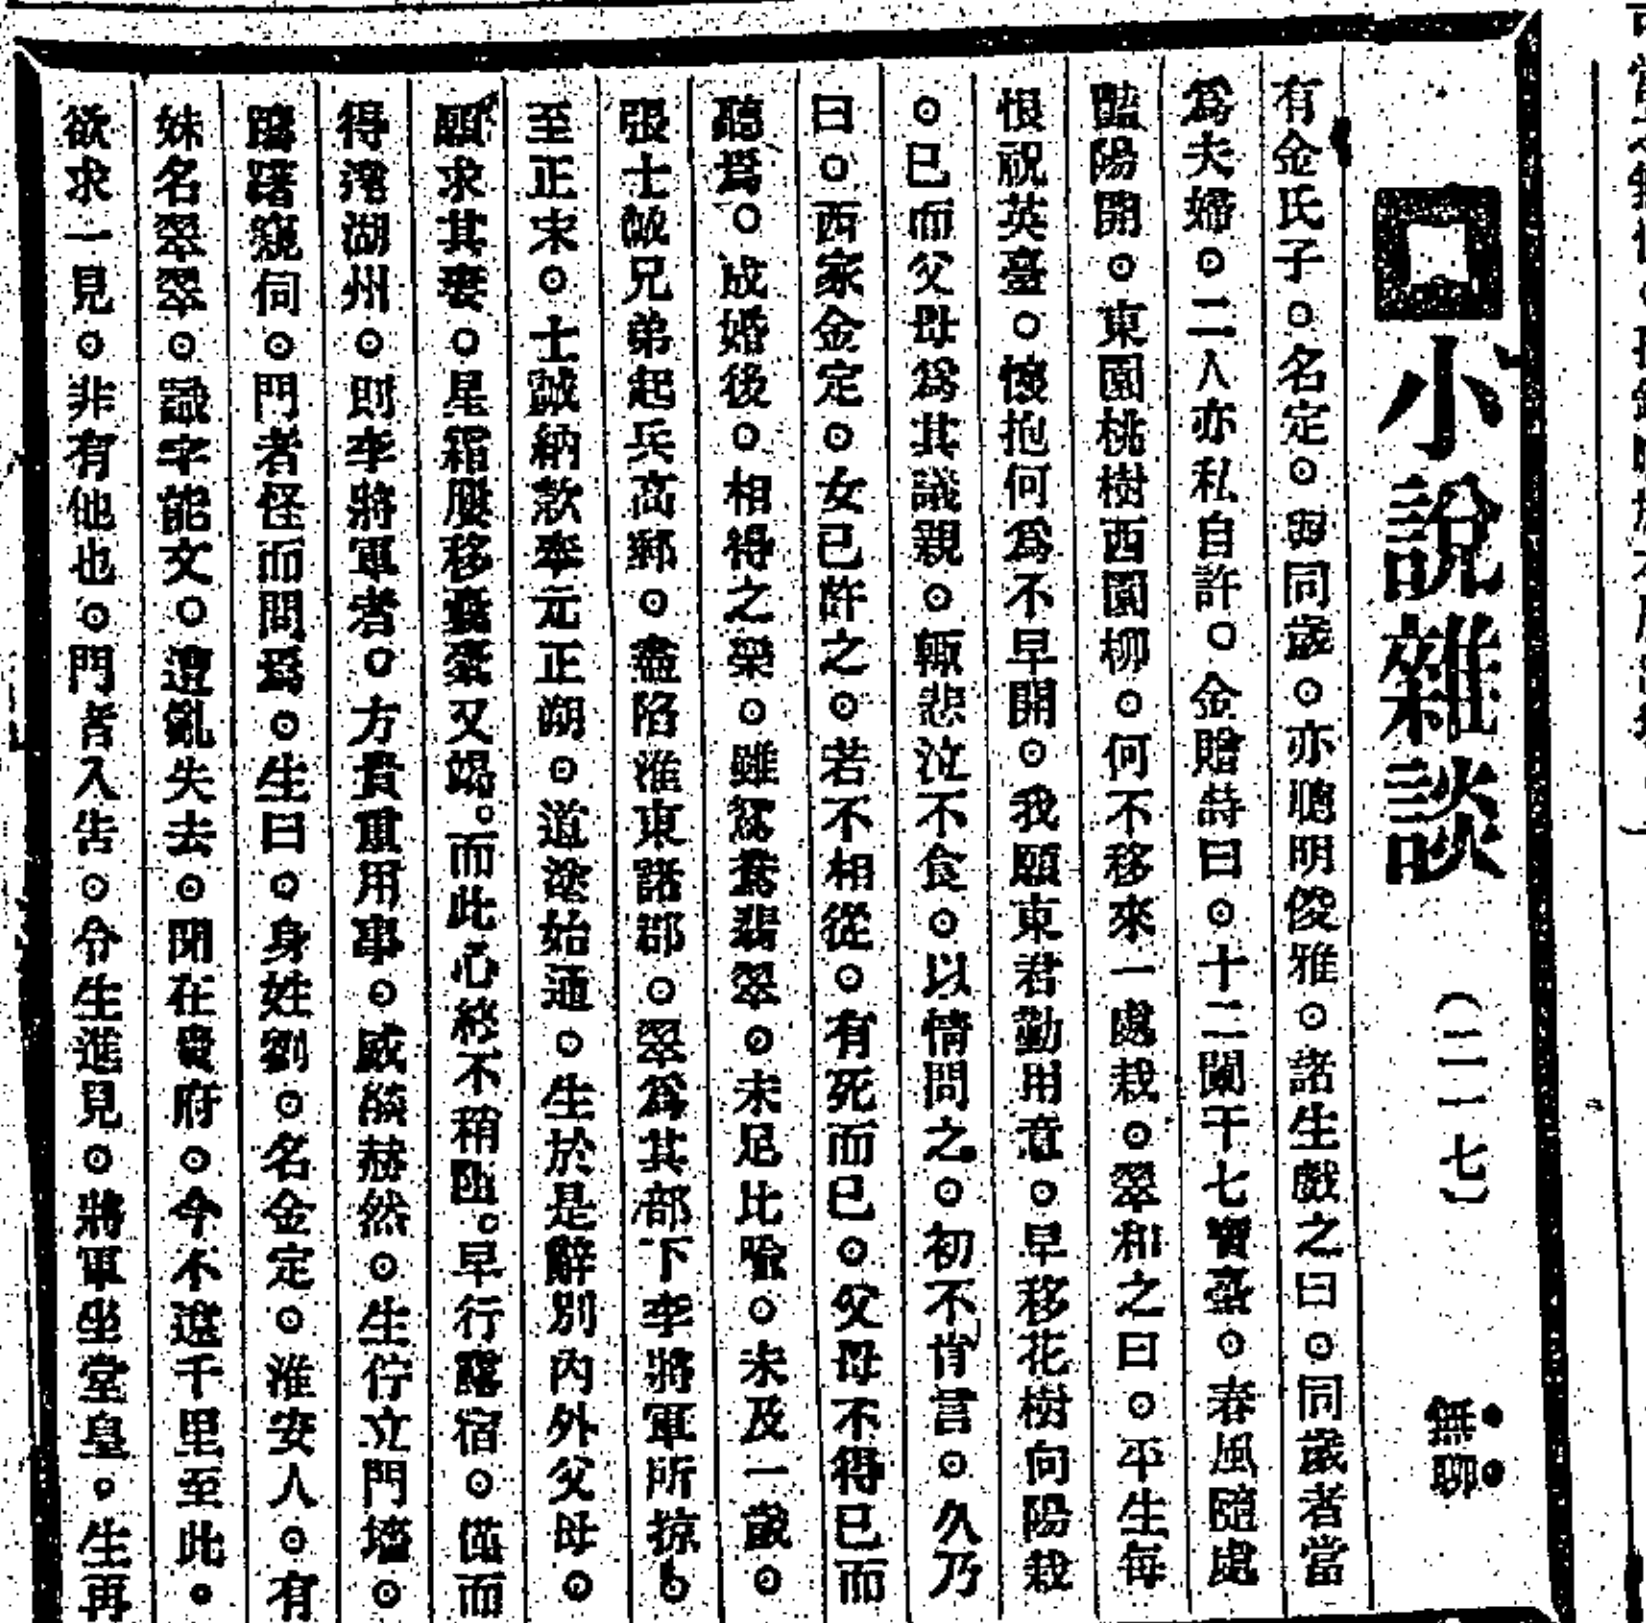 小說雜談 (二一七) 無聊
有金氏子。名定。與同歲。亦聰明俊雅。諸生戲之曰。同歲者當
爲夫婦。二人亦私自許。金贈詩曰。十二闌干七寶臺。春風隨處
豔陽開。東園桃樹西園柳。何不移來一處栽。翠和之曰。平生每
恨祝英臺。懷抱何爲不早開。我願東君勤用意。早移花樹向陽栽
。已而父母爲其議親。輒悲泣不食。以情問之。初不肯言。久乃
曰。西家金定。女已許之。若不相從。有死而已。父母不得已而
聽爲。成婚後。相得之樂。雖鴛鴦翡翠。未足比喩。未及一歲。
張士誠兄弟起兵高郵。盡陷淮東諸郡。翠爲其部下李將軍所掠。
至正末。士誠納款奉元正朔。道途始通。生於是辭別內外父母。
願求其妻。星霜屢移囊橐又竭。而此心終不稍。早行露宿。僅而
得達湖州。則李將軍者。方貴重用事。威燄赫然。生佇立門墻。
躊躇窺伺。門者怪而問爲。生曰。身姓劉。名金定。淮安人。有
妹名翠翠。識字能文。遭亂失去。聞在貴府。今不遠千里至此。
欲求一見。非有他也。門者入告。令生進見。將軍坐堂皇。生再